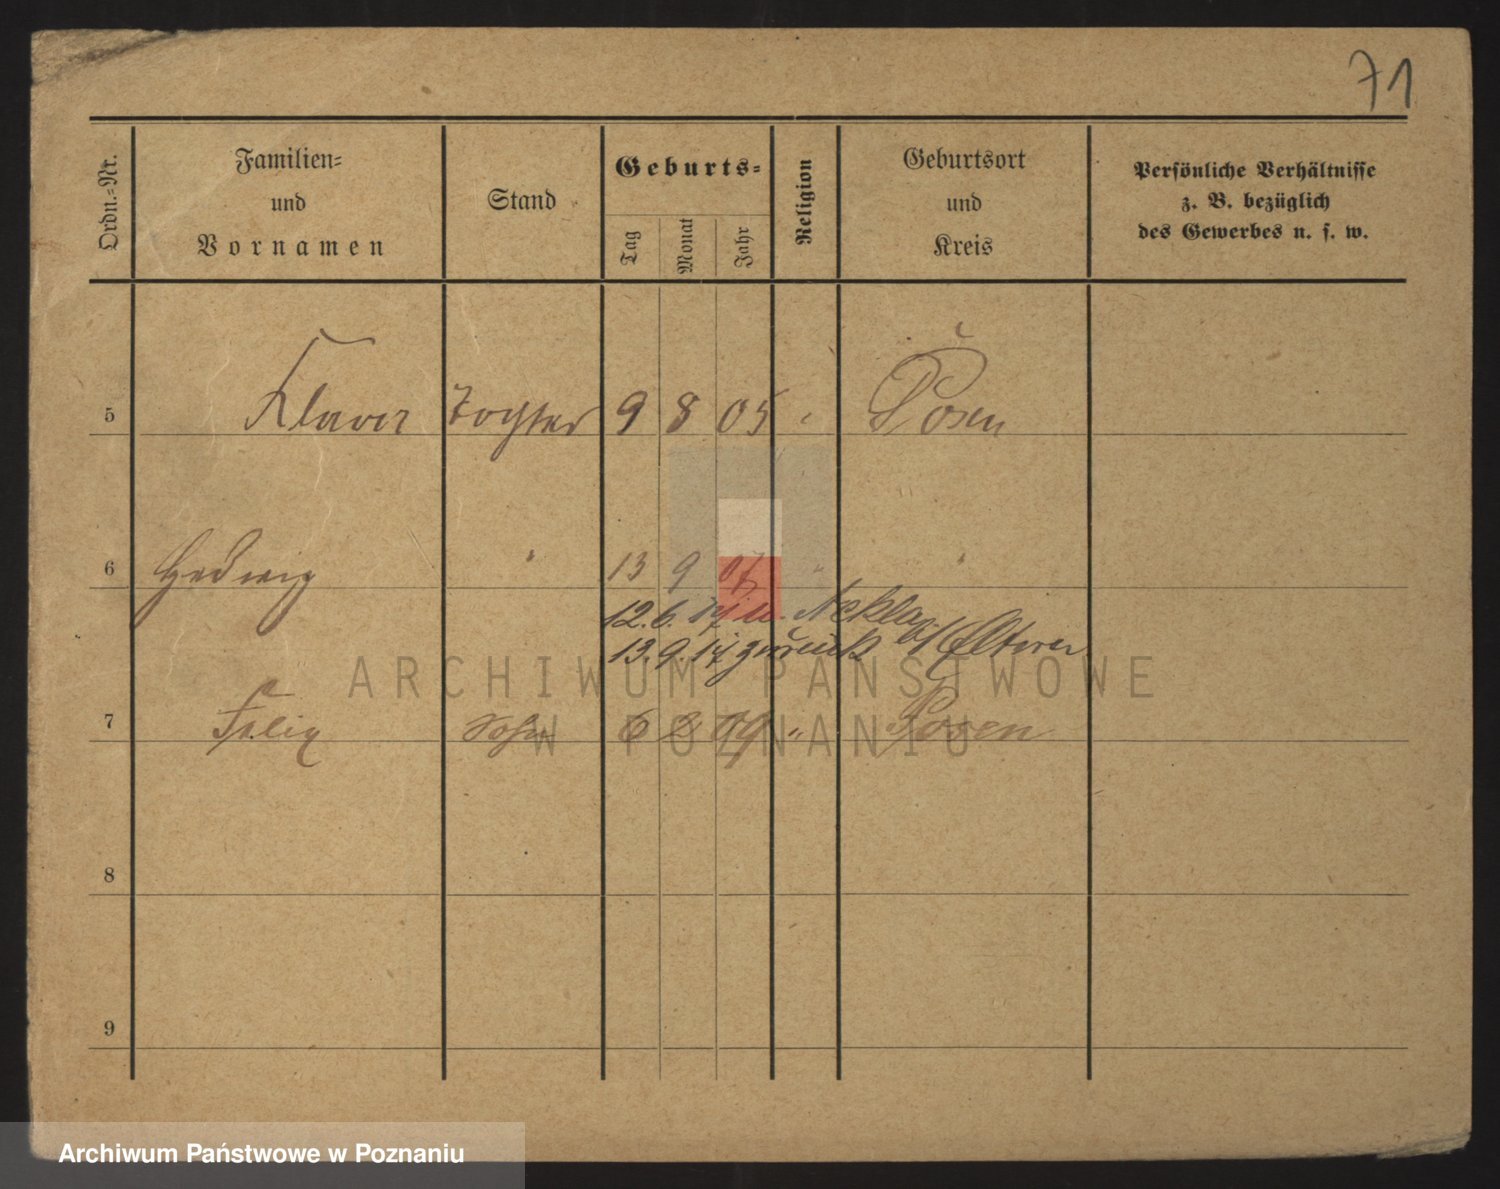 71
Ordn.-Nr.
Familien-
und
Vornamen
Stand
Geburts-
Tag
Monat
Jahr
Religion
Geburtsort
und
Kreis
Persönliche Verhältnisse
z. B. bezüglich
des Gewerbes u. s. w.
5 Klara Tochter 9 8 05 " Posen
6 Hedwig " 13 9 07 " "
12.6.17 n. Nekla
13.9.17 zurück b/ Eltern
7 Felix Sohn 6 2 09 " Posen
8
9
ARCHIWUM PAŃSTWOWE
W POZNANIU
Archiwum Państwowe w Poznaniu